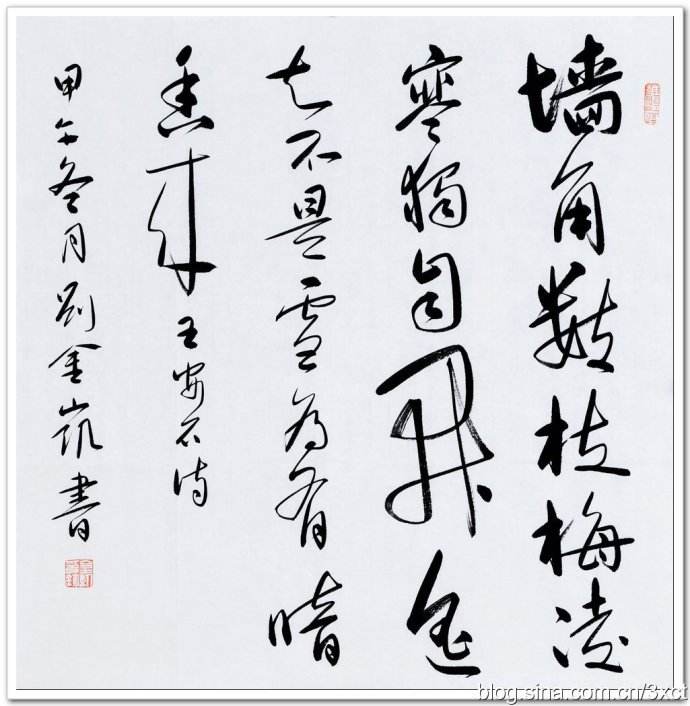 墙角数枝梅凌
寒独自开遥
知不是雪为有暗
香来 王安石诗
甲午冬月刘金凯書
blog.sina.com.cn/3xct